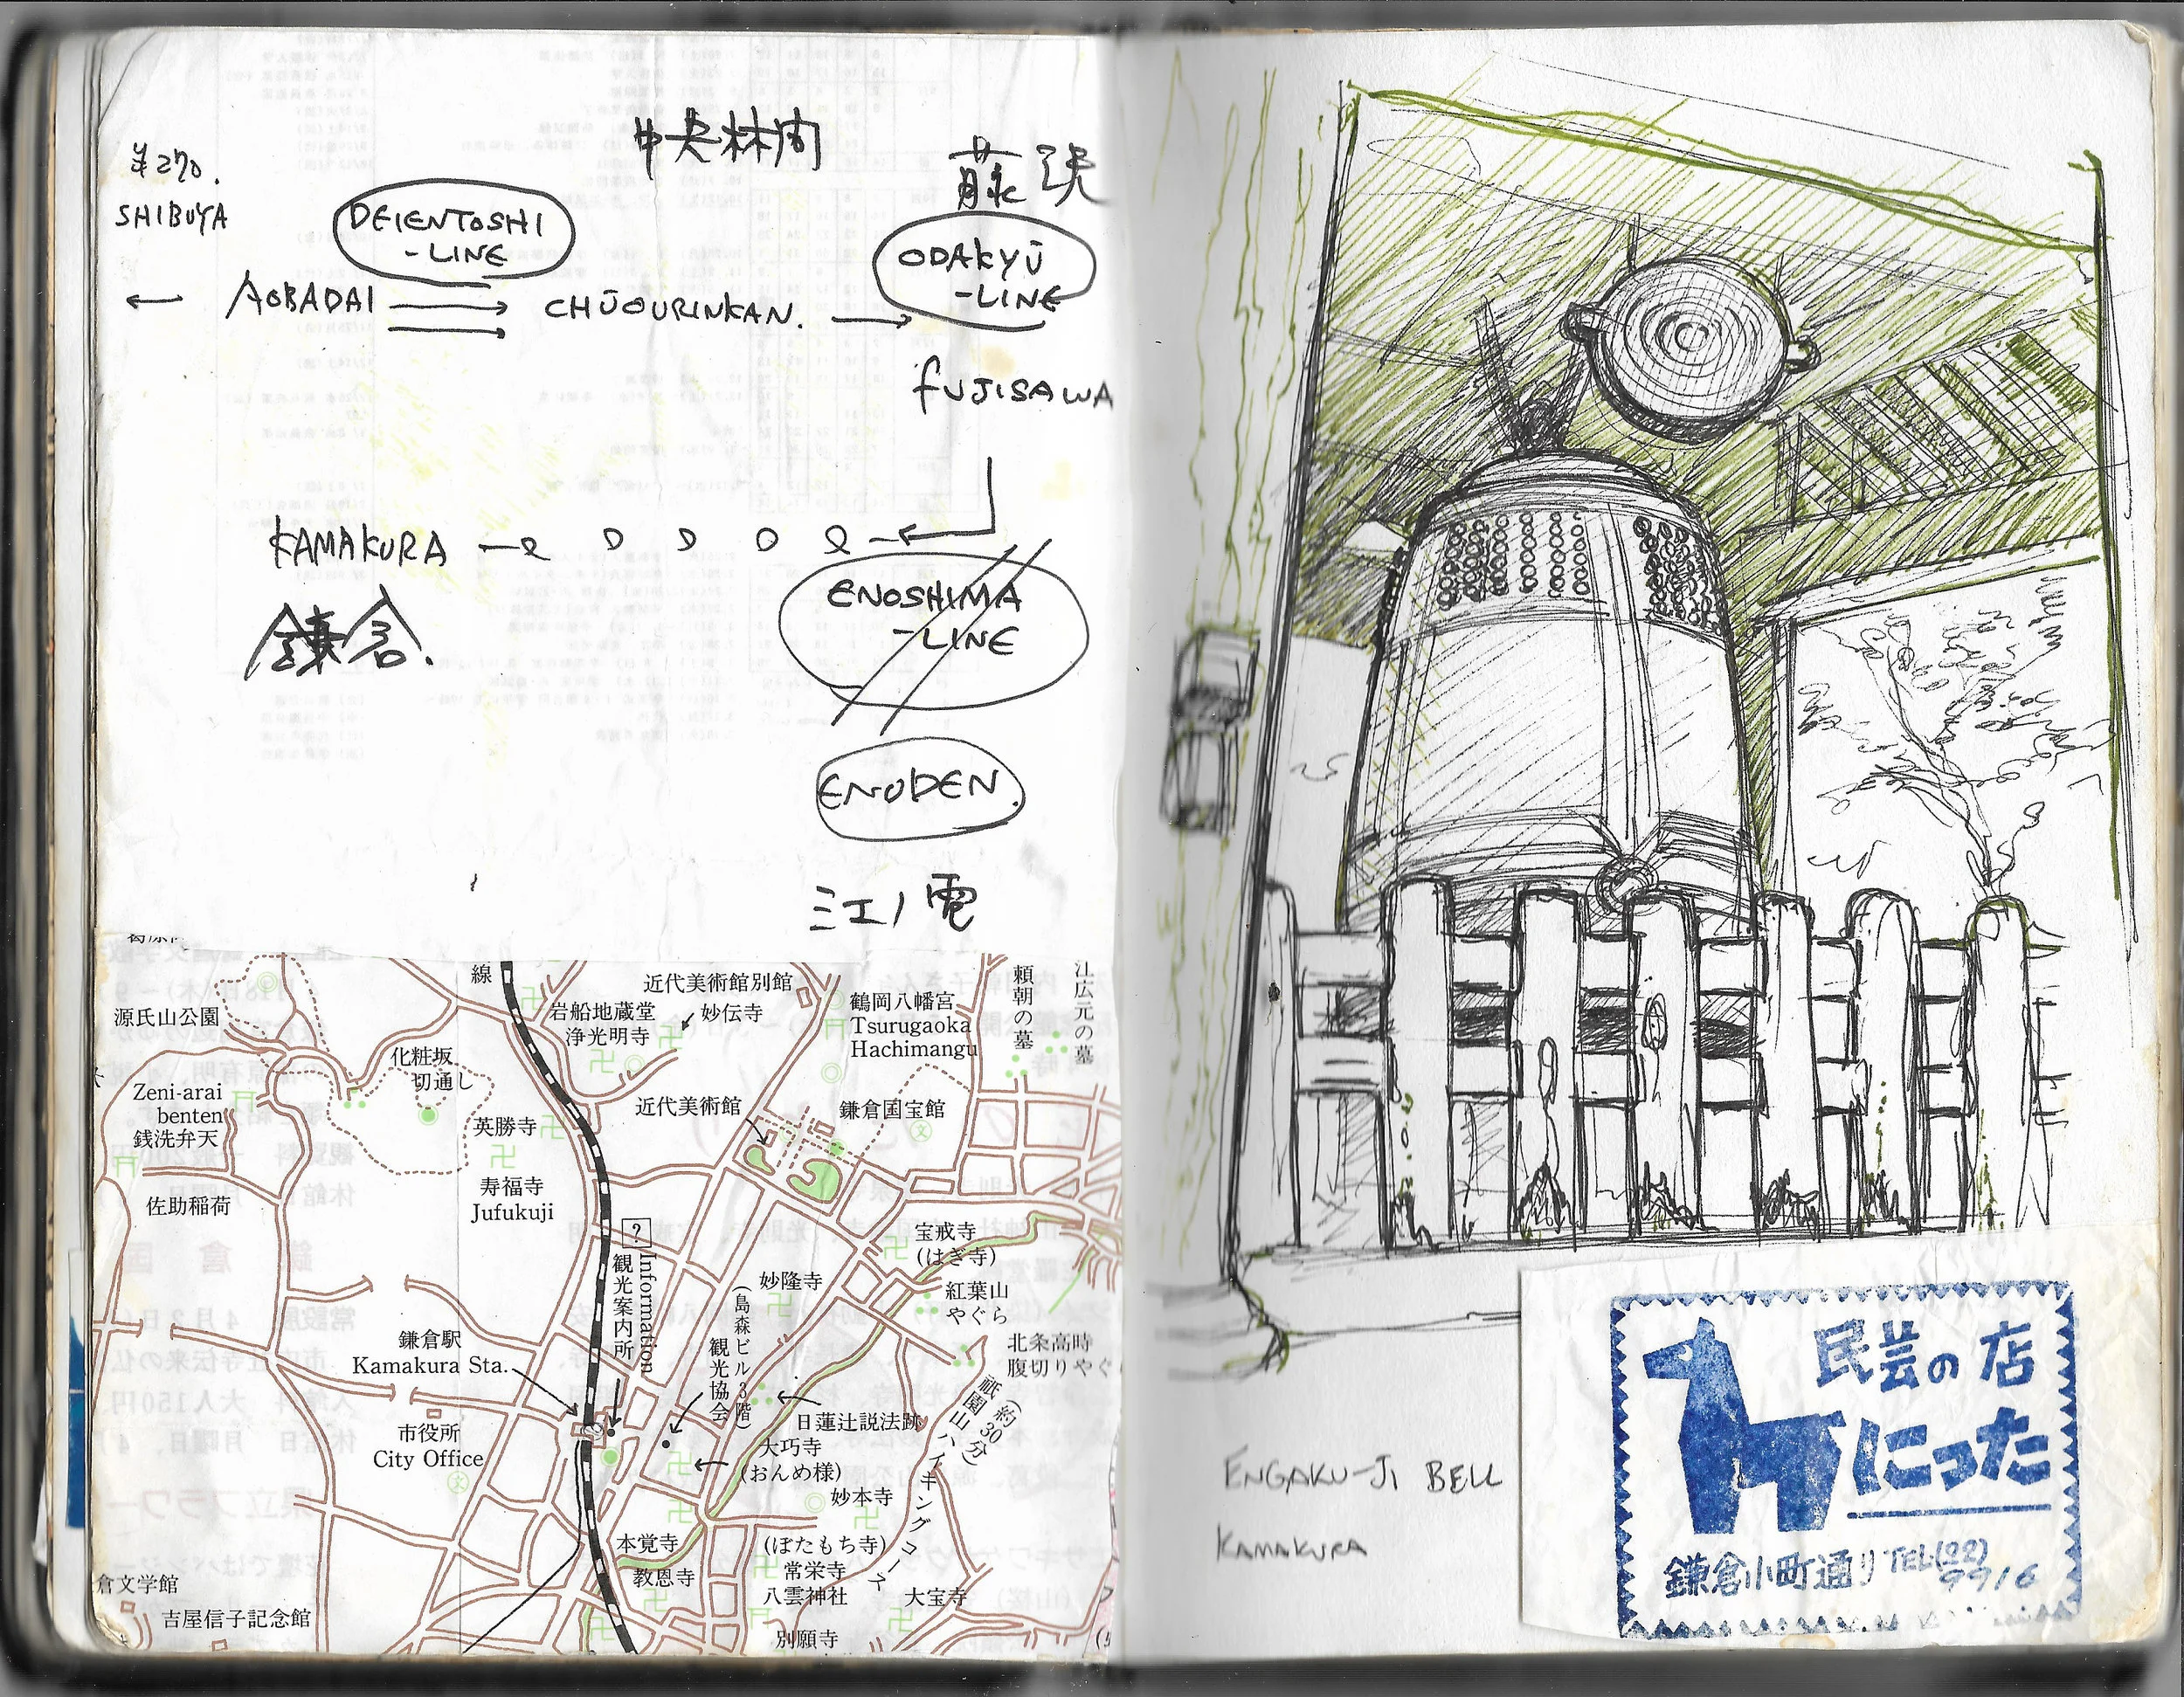 ¥270.
SHIBUYA
DEIENTOSHI
-LINE
中央林间
藤沢
ODAKYŪ
-LINE
AOBADAI
CHŪOURINKAN.
FUJISAWA
KAMAKURA
鎌倉.
ENOSHIMA
-LINE
ENODEN.
江ノ電
線
源氏山公園
Zeni-arai
benten
銭洗弁天
佐助稲荷
化粧坂
切通し
英勝寺
寿福寺
Jufukuji
岩船地蔵堂
浄光明寺
近代美術館別館
妙伝寺
鶴岡八幡宮
Tsurugaoka
Hachimangu
頼朝の墓
江広元の墓
近代美術館
鎌倉国宝館
文
?
Information
観光案内所
宝戒寺
(はぎ寺)
紅葉山
やぐら
北条高時
腹切りやぐ
妙隆寺
(島森ビル3階)
観光協会
鎌倉駅
Kamakura Sta.
市役所
City Office
文
日蓮辻説法跡
大巧寺
(おんめ様)
妙本寺
祇園山ハイキングコース
(約30分)
本覚寺
教恩寺
(ぼたもち寺)
常栄寺
八雲神社
大宝寺
別願寺
倉文学館
吉屋信子記念館
ENGAKU-JI BELL
KAMAKURA
民芸の店
にった
鎌倉小町通り TEL(22)
9916